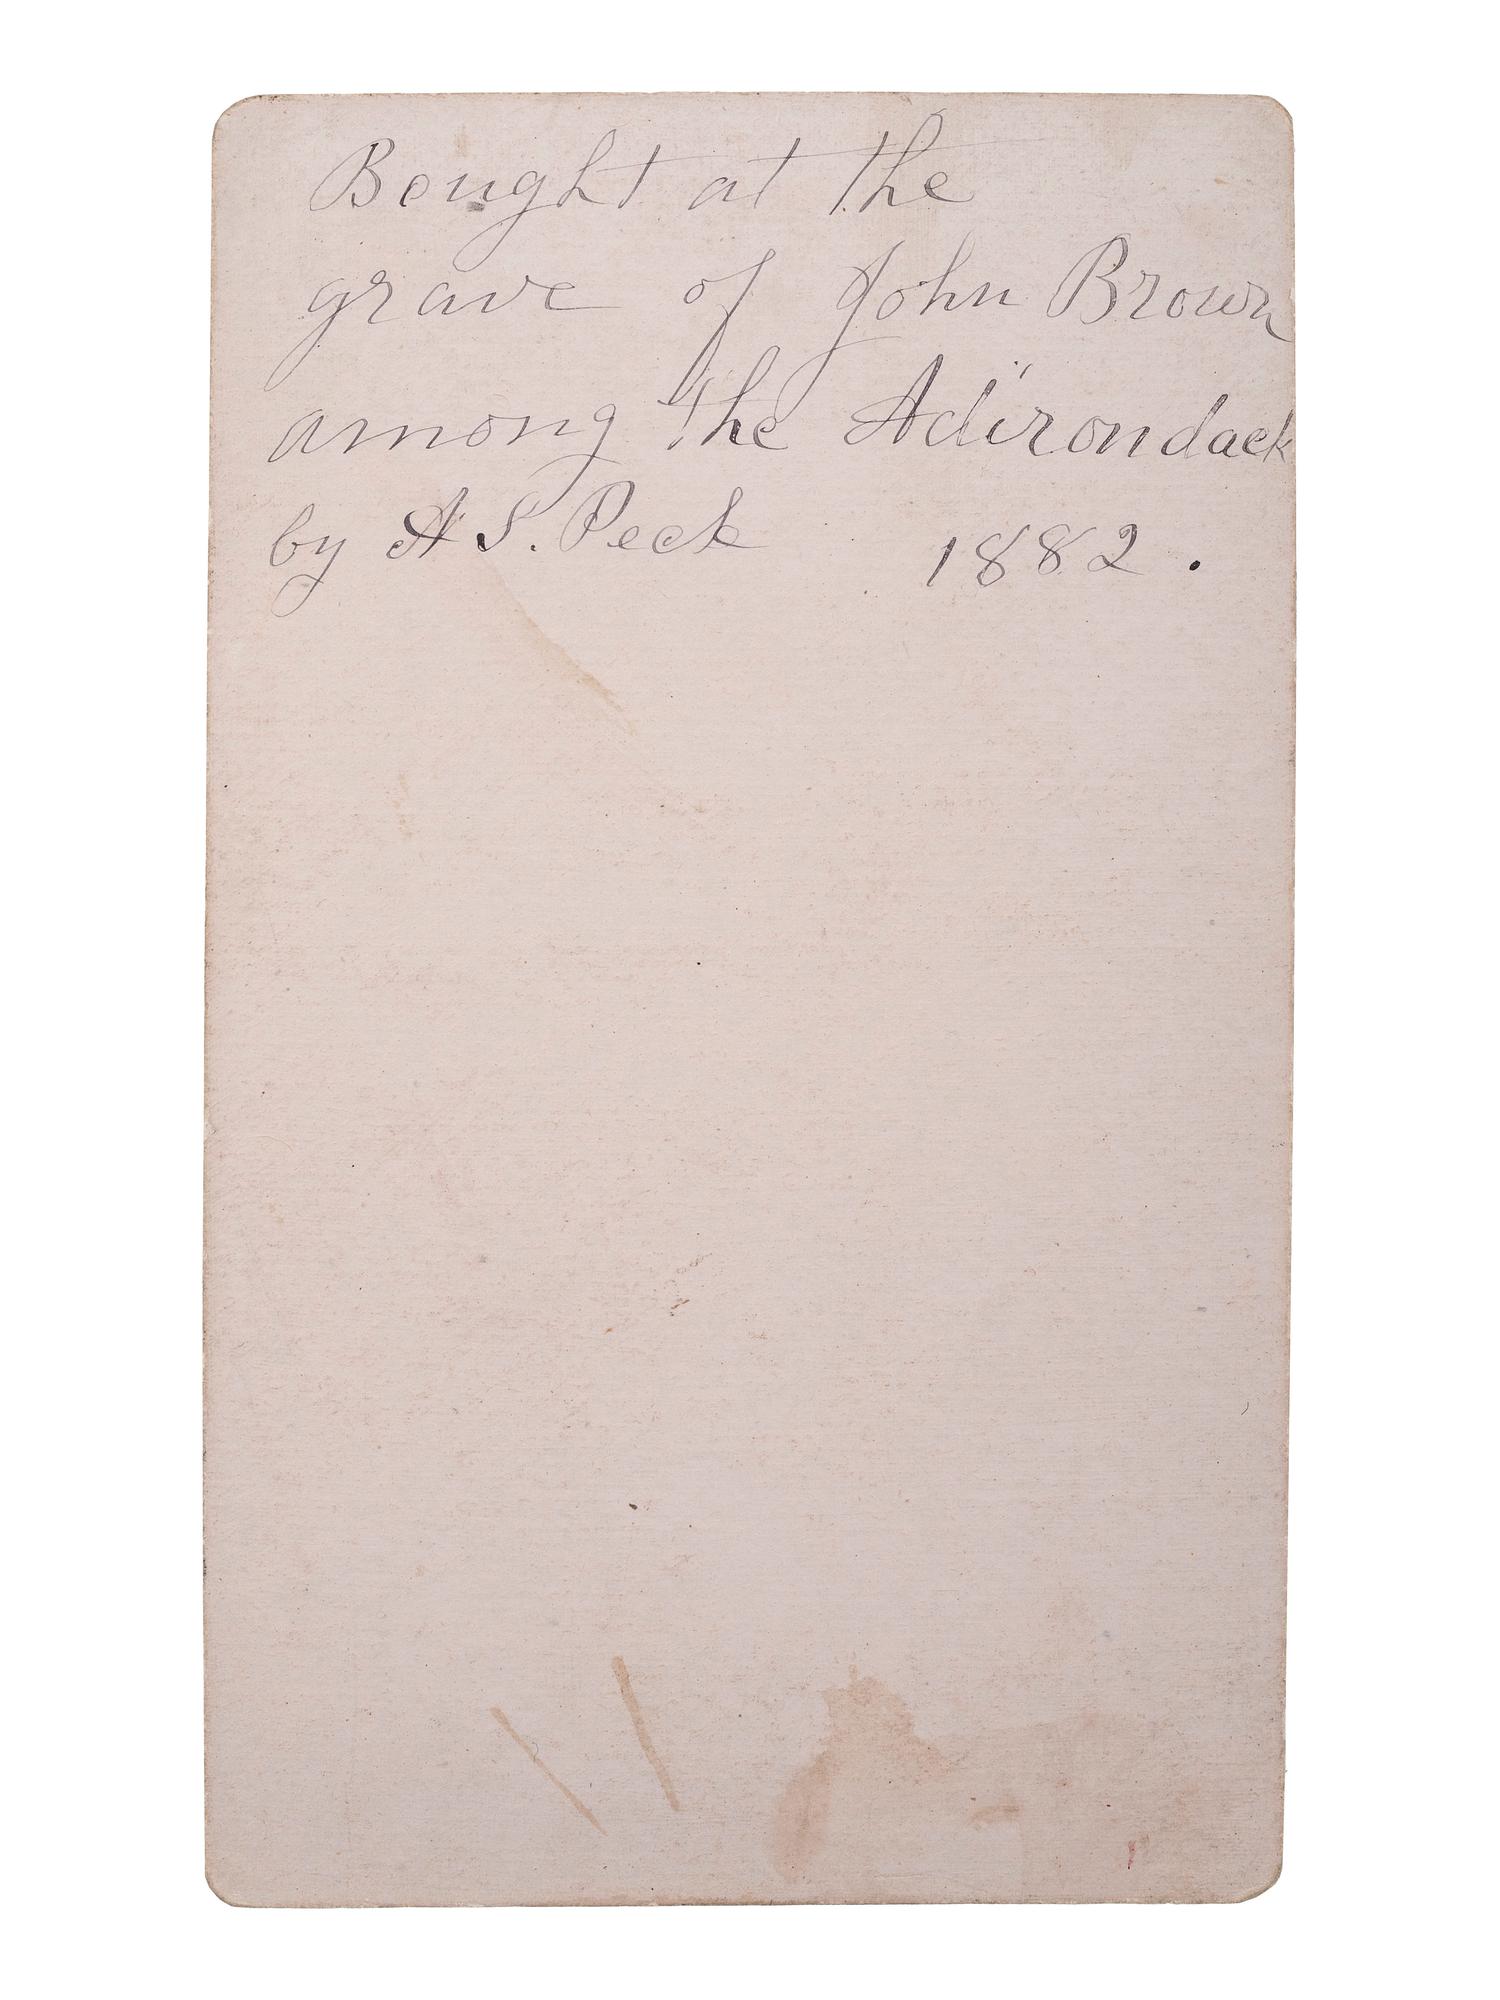 Bought at the
grave of John Brown
among the Adirondack
by A S. Peck 1882.